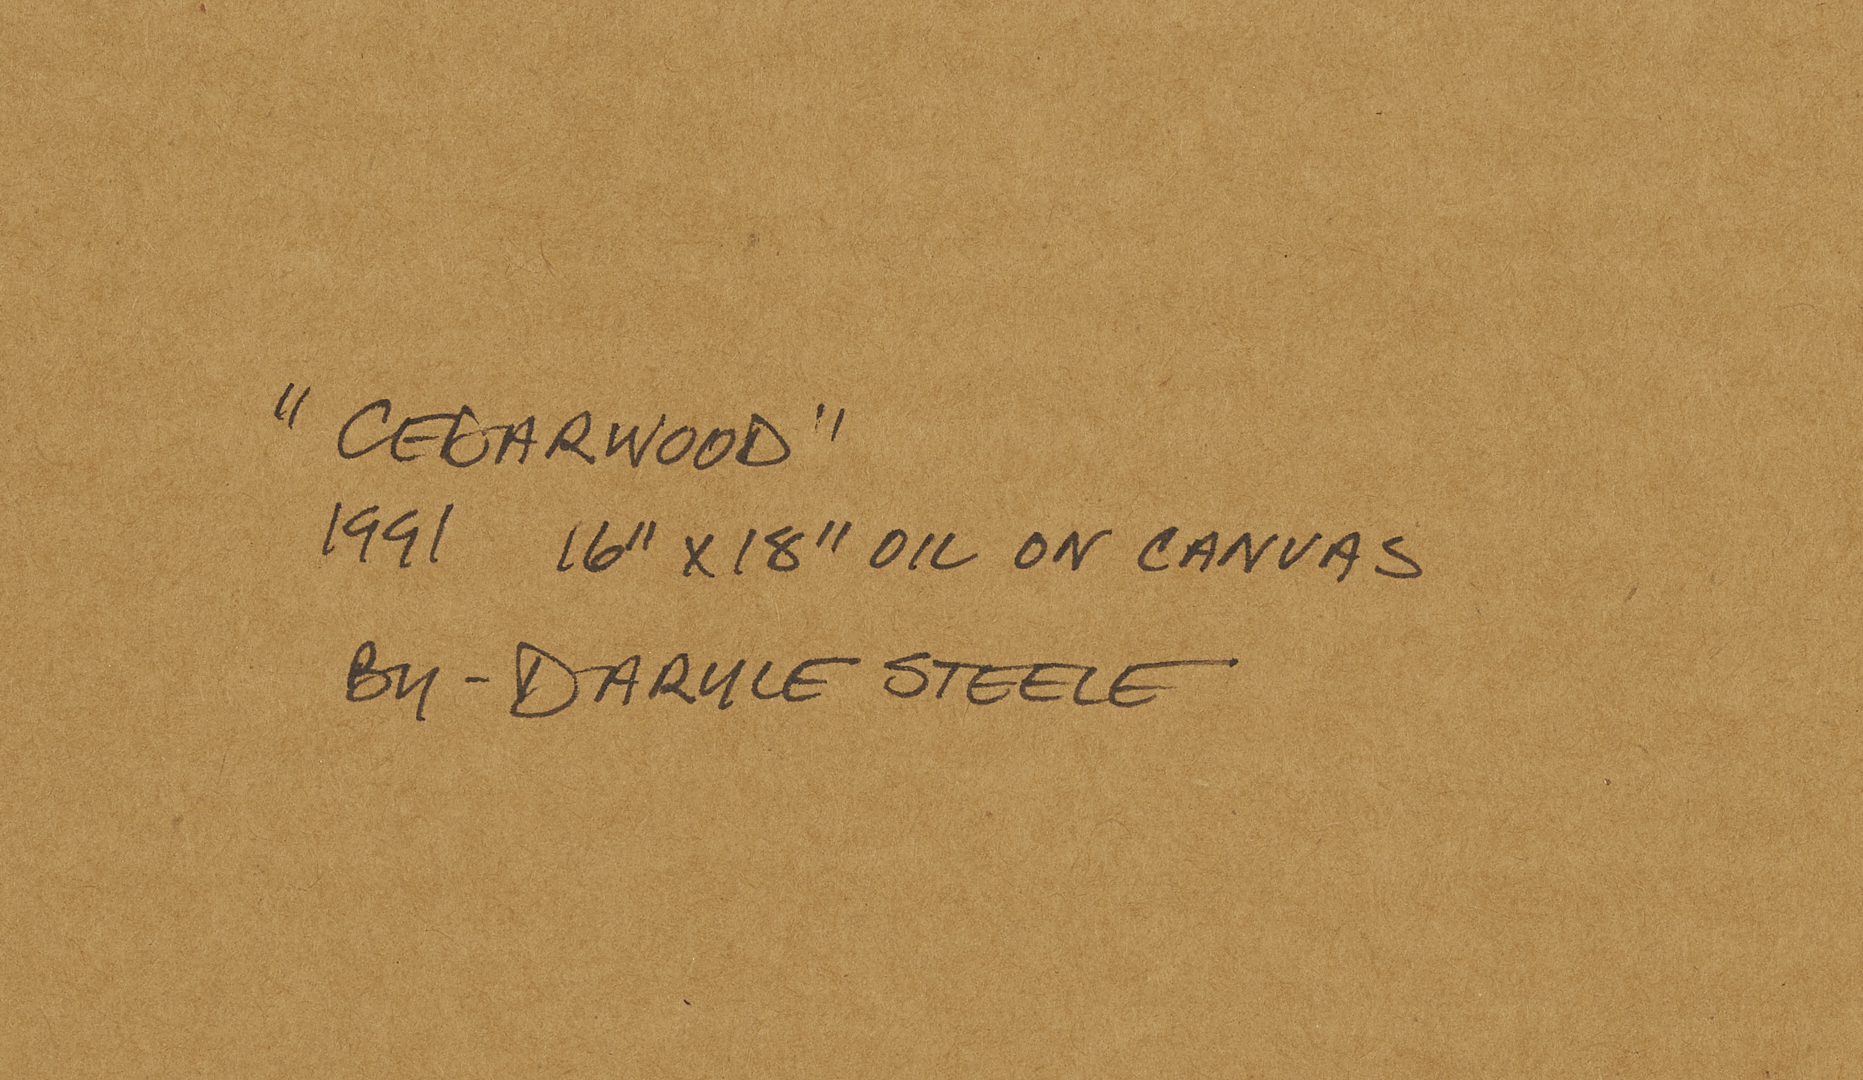 "CEDARWOOD"
1991 16" X 18" OIL ON CANVAS
BY - DARYLE STEELE